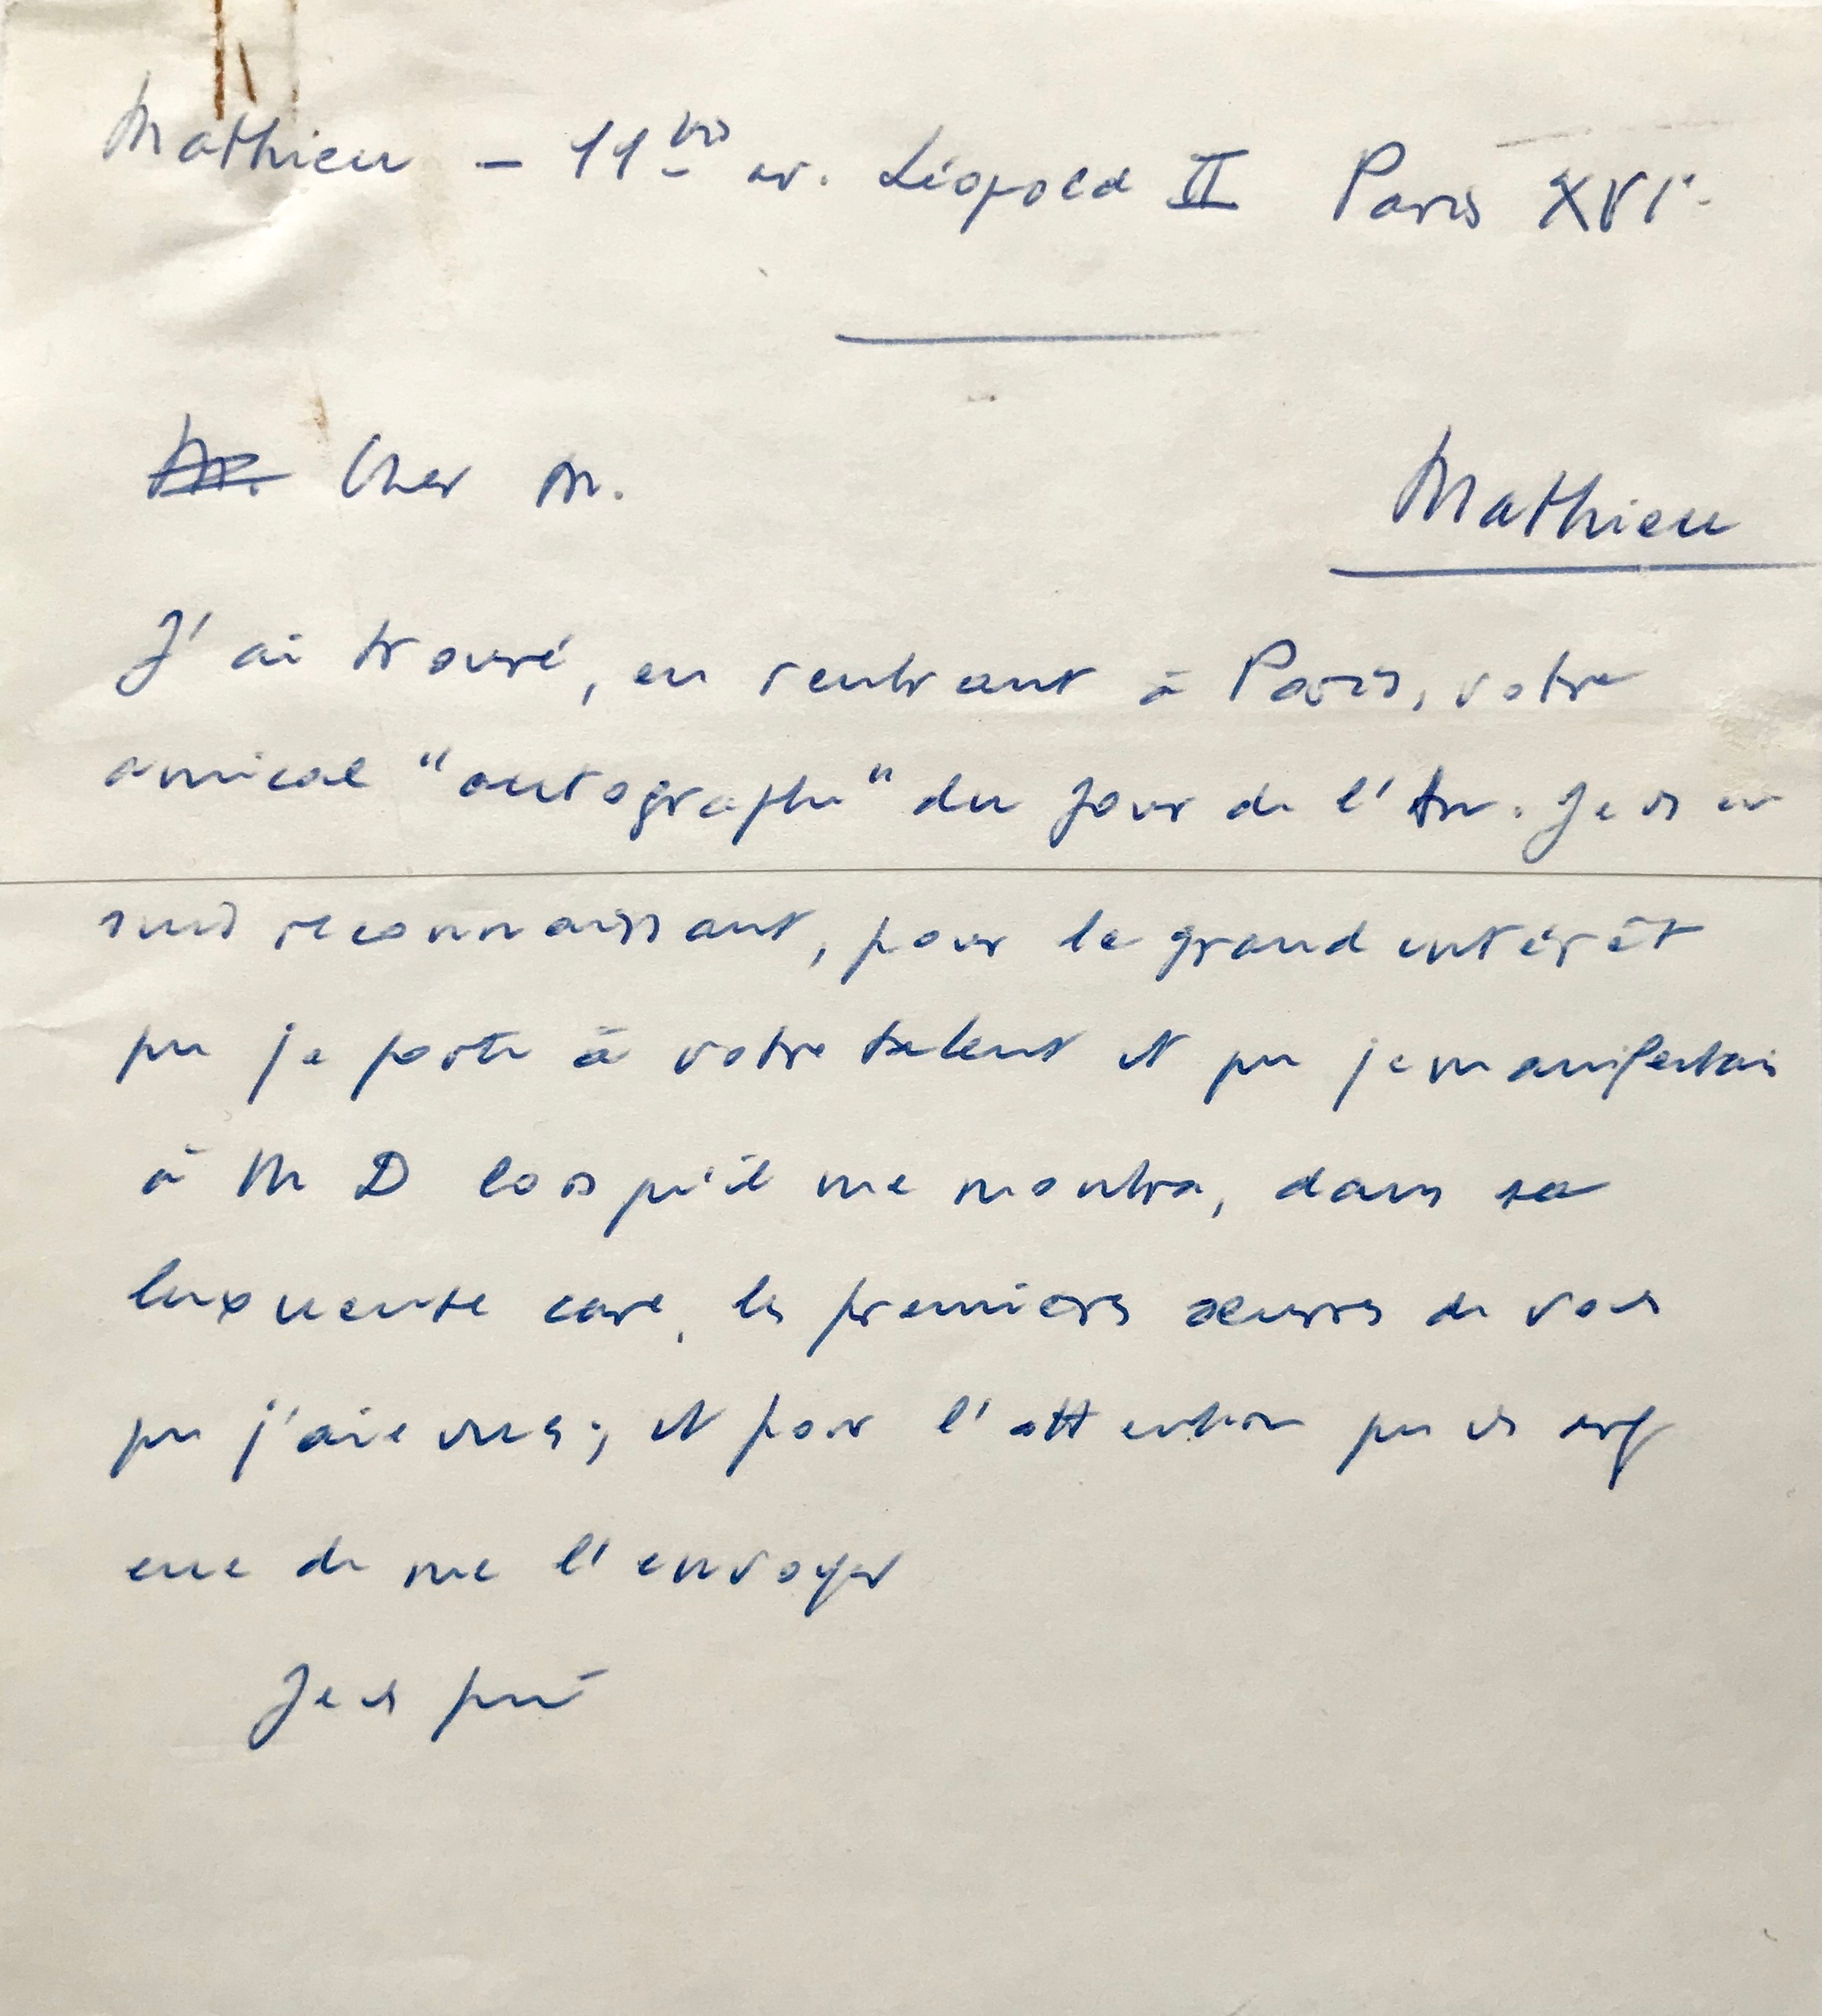 Mathieu – 11 bis av. Léopold II Paris XVIe.
M. Cher M.
Mathieu
J'ai trouvé, en rentrant à Paris, votre
amical "autographe" du Jour de l'An. Je vs en
suis reconnaissant, pour le grand intérêt
que je porte à votre talent et que je manifestais
à M D lorsqu'il me montra, dans sa
luxueuse cave, les premières œuvres de vous
que j'aie vues ; et pour l'attention que vs
eue de me l'envoyer
Je vs prie